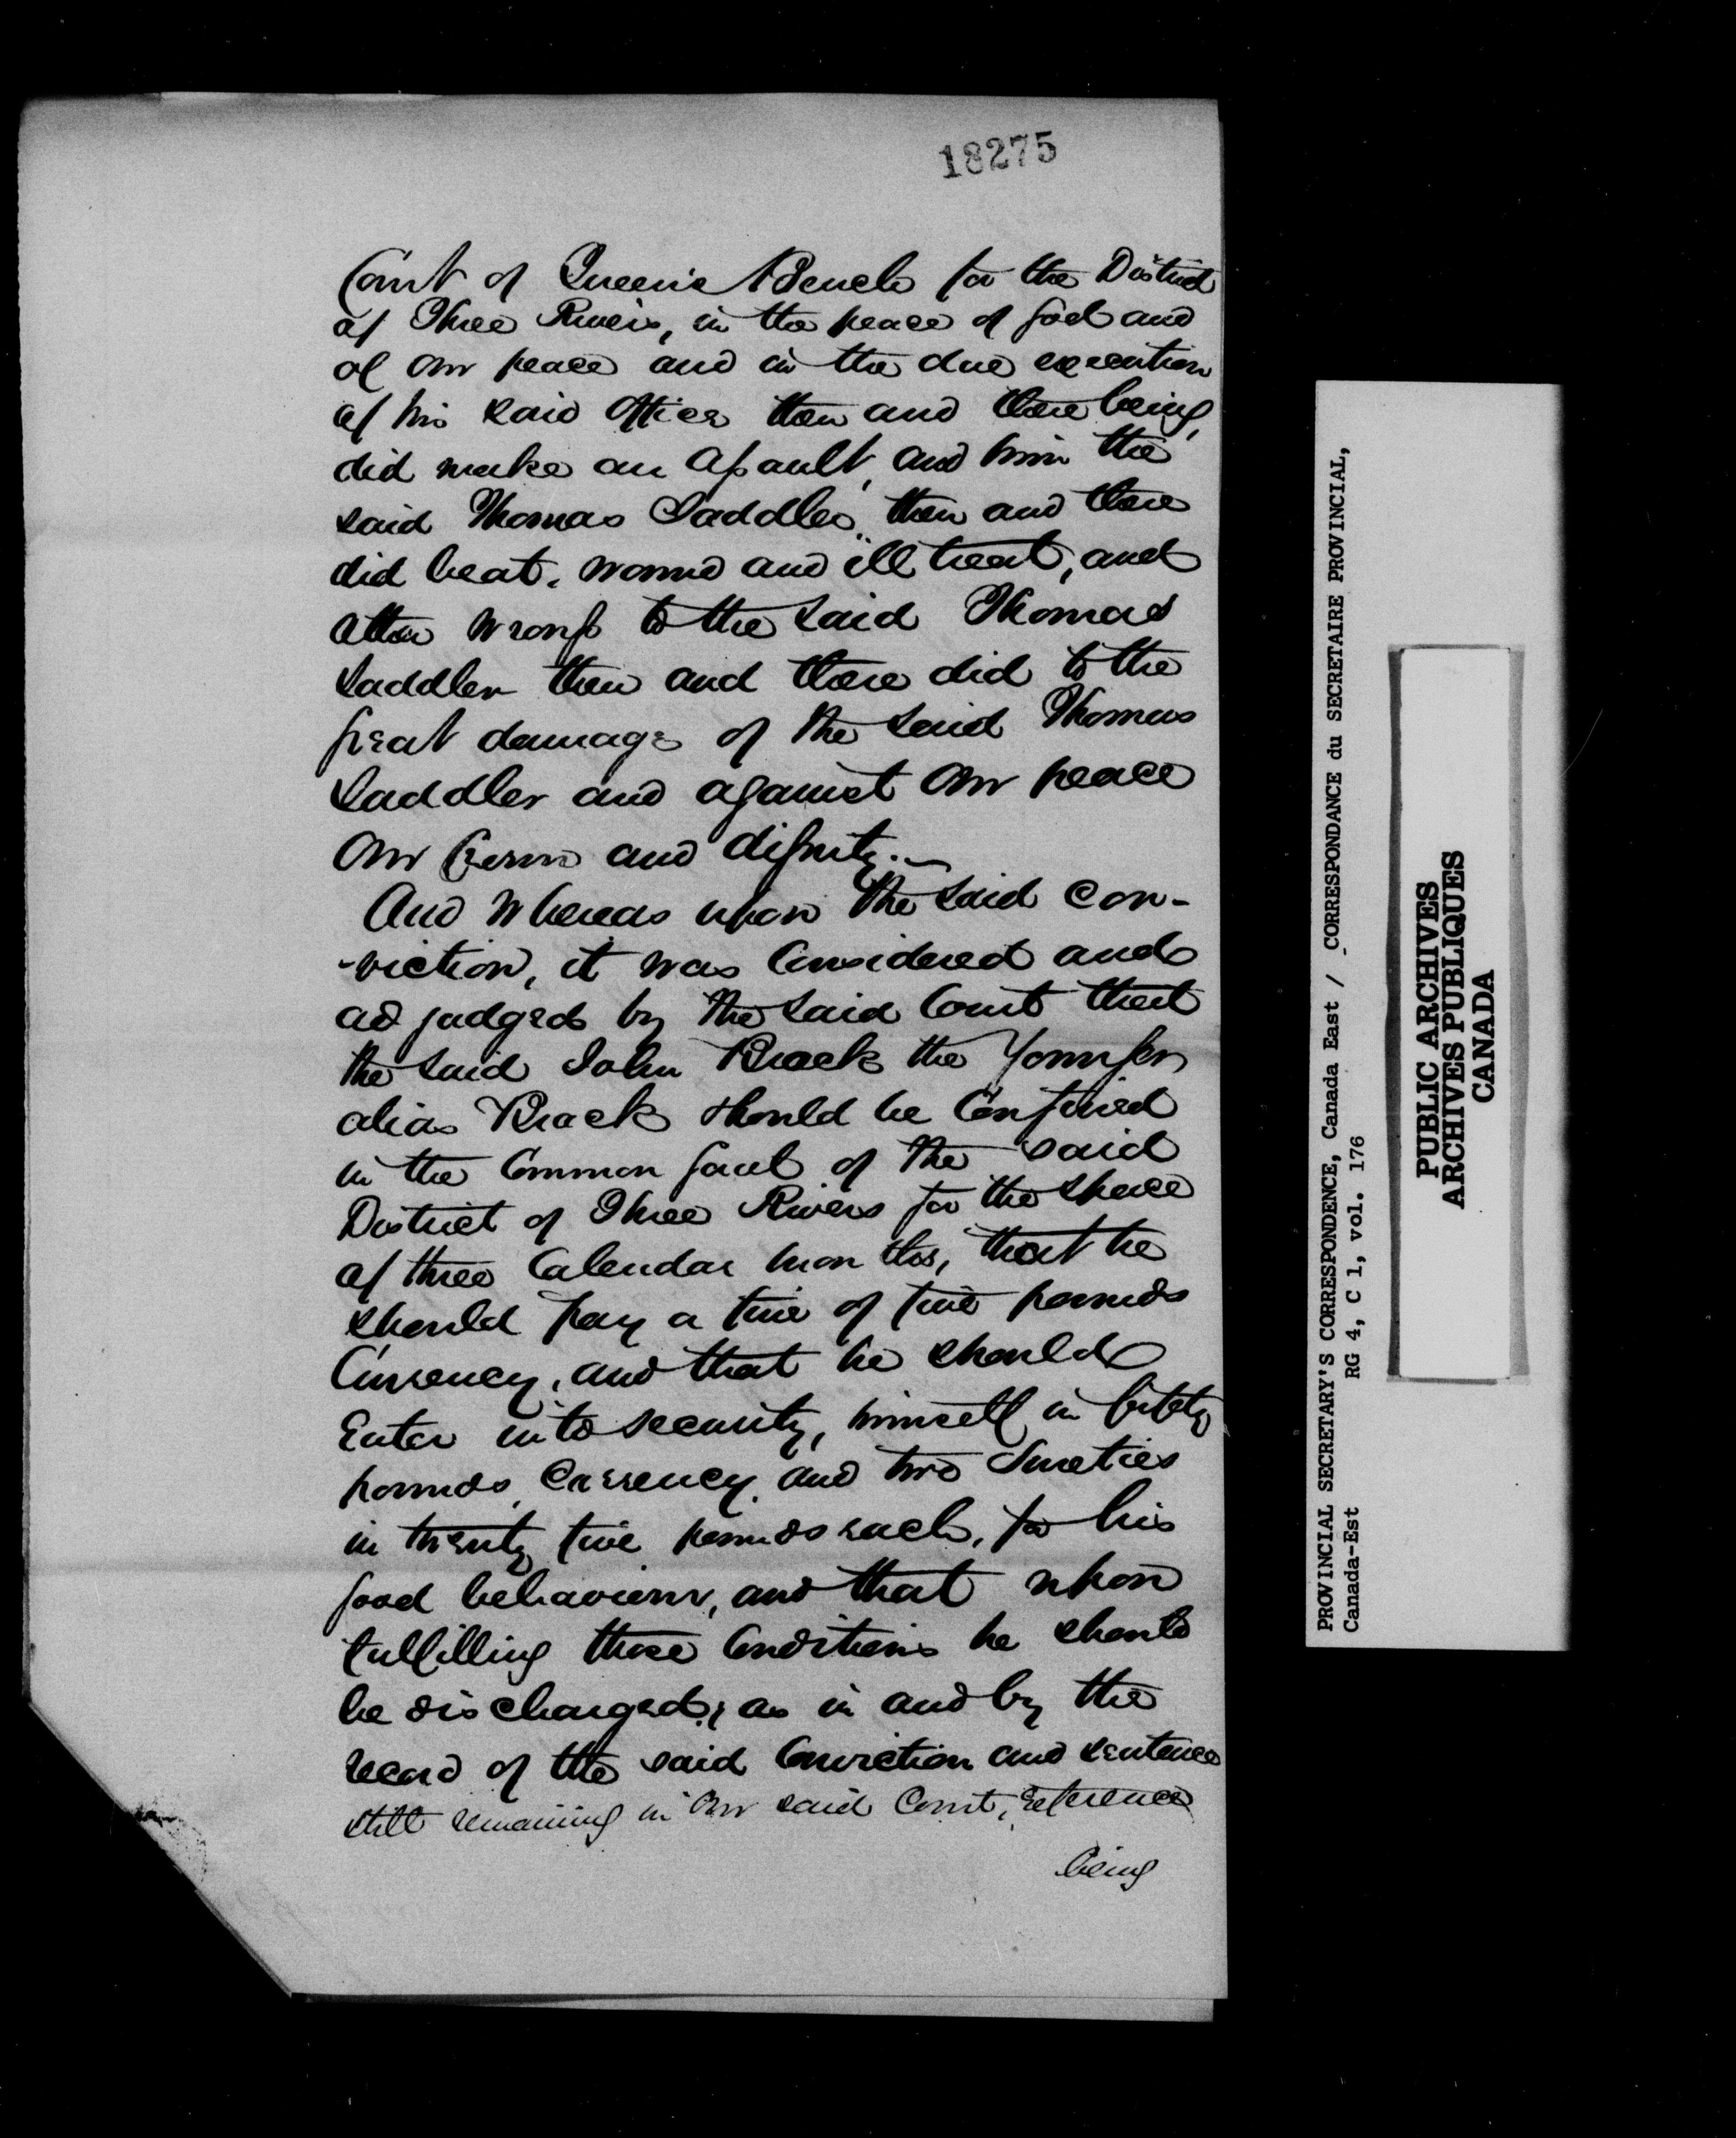 18275
Court of Queen's Bench for the District
of Three Rivers, in the peace of God and
of Our peace and in the due execution
of his said Office then and there being,
did make an assault, and him the
said Thomas Saddler, then and there
did beat, wound and ill treat, and
other wrongs to the said Thomas
Saddler then and there did to the
great damage of the said Thomas
Saddler and against Our peace
Our Crown and dignity.
And Whereas upon the said con-
-viction, it was Considered and
adjudged by the said Court that
the said John Brack the Younger
alias Brack should be Confined
in the Common Gaol of the said
District of Three Rivers for the space
of three Calendar months, that he
should pay a fine of five pounds
Currency, and that he should
Enter into security, himself in fifty
pounds, Currency, and two Sureties
in twenty five pounds each, for his
good behaviour, and that upon
fulfilling those Conditions he should
be discharged; as in and by the
record of the said Conviction and sentence
still remaining in Our said Court, reference
being
PROVINCIAL SECRETARY'S CORRESPONDENCE, Canada East / CORRESPONDANCE du SECRETAIRE PROVINCIAL,
Canada-Est RG 4, C 1, vol. 176
PUBLIC ARCHIVES
ARCHIVES PUBLIQUES
CANADA